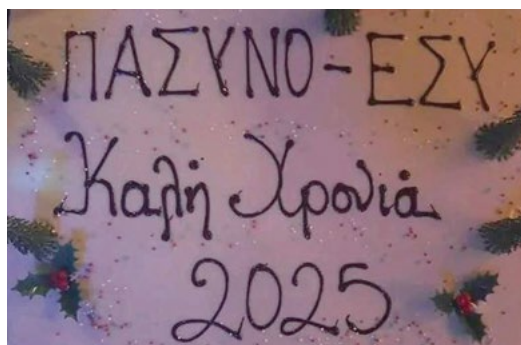 ΠΑΣΥΝΟ-ΕΣΥ
Καλή Χρονιά
2025